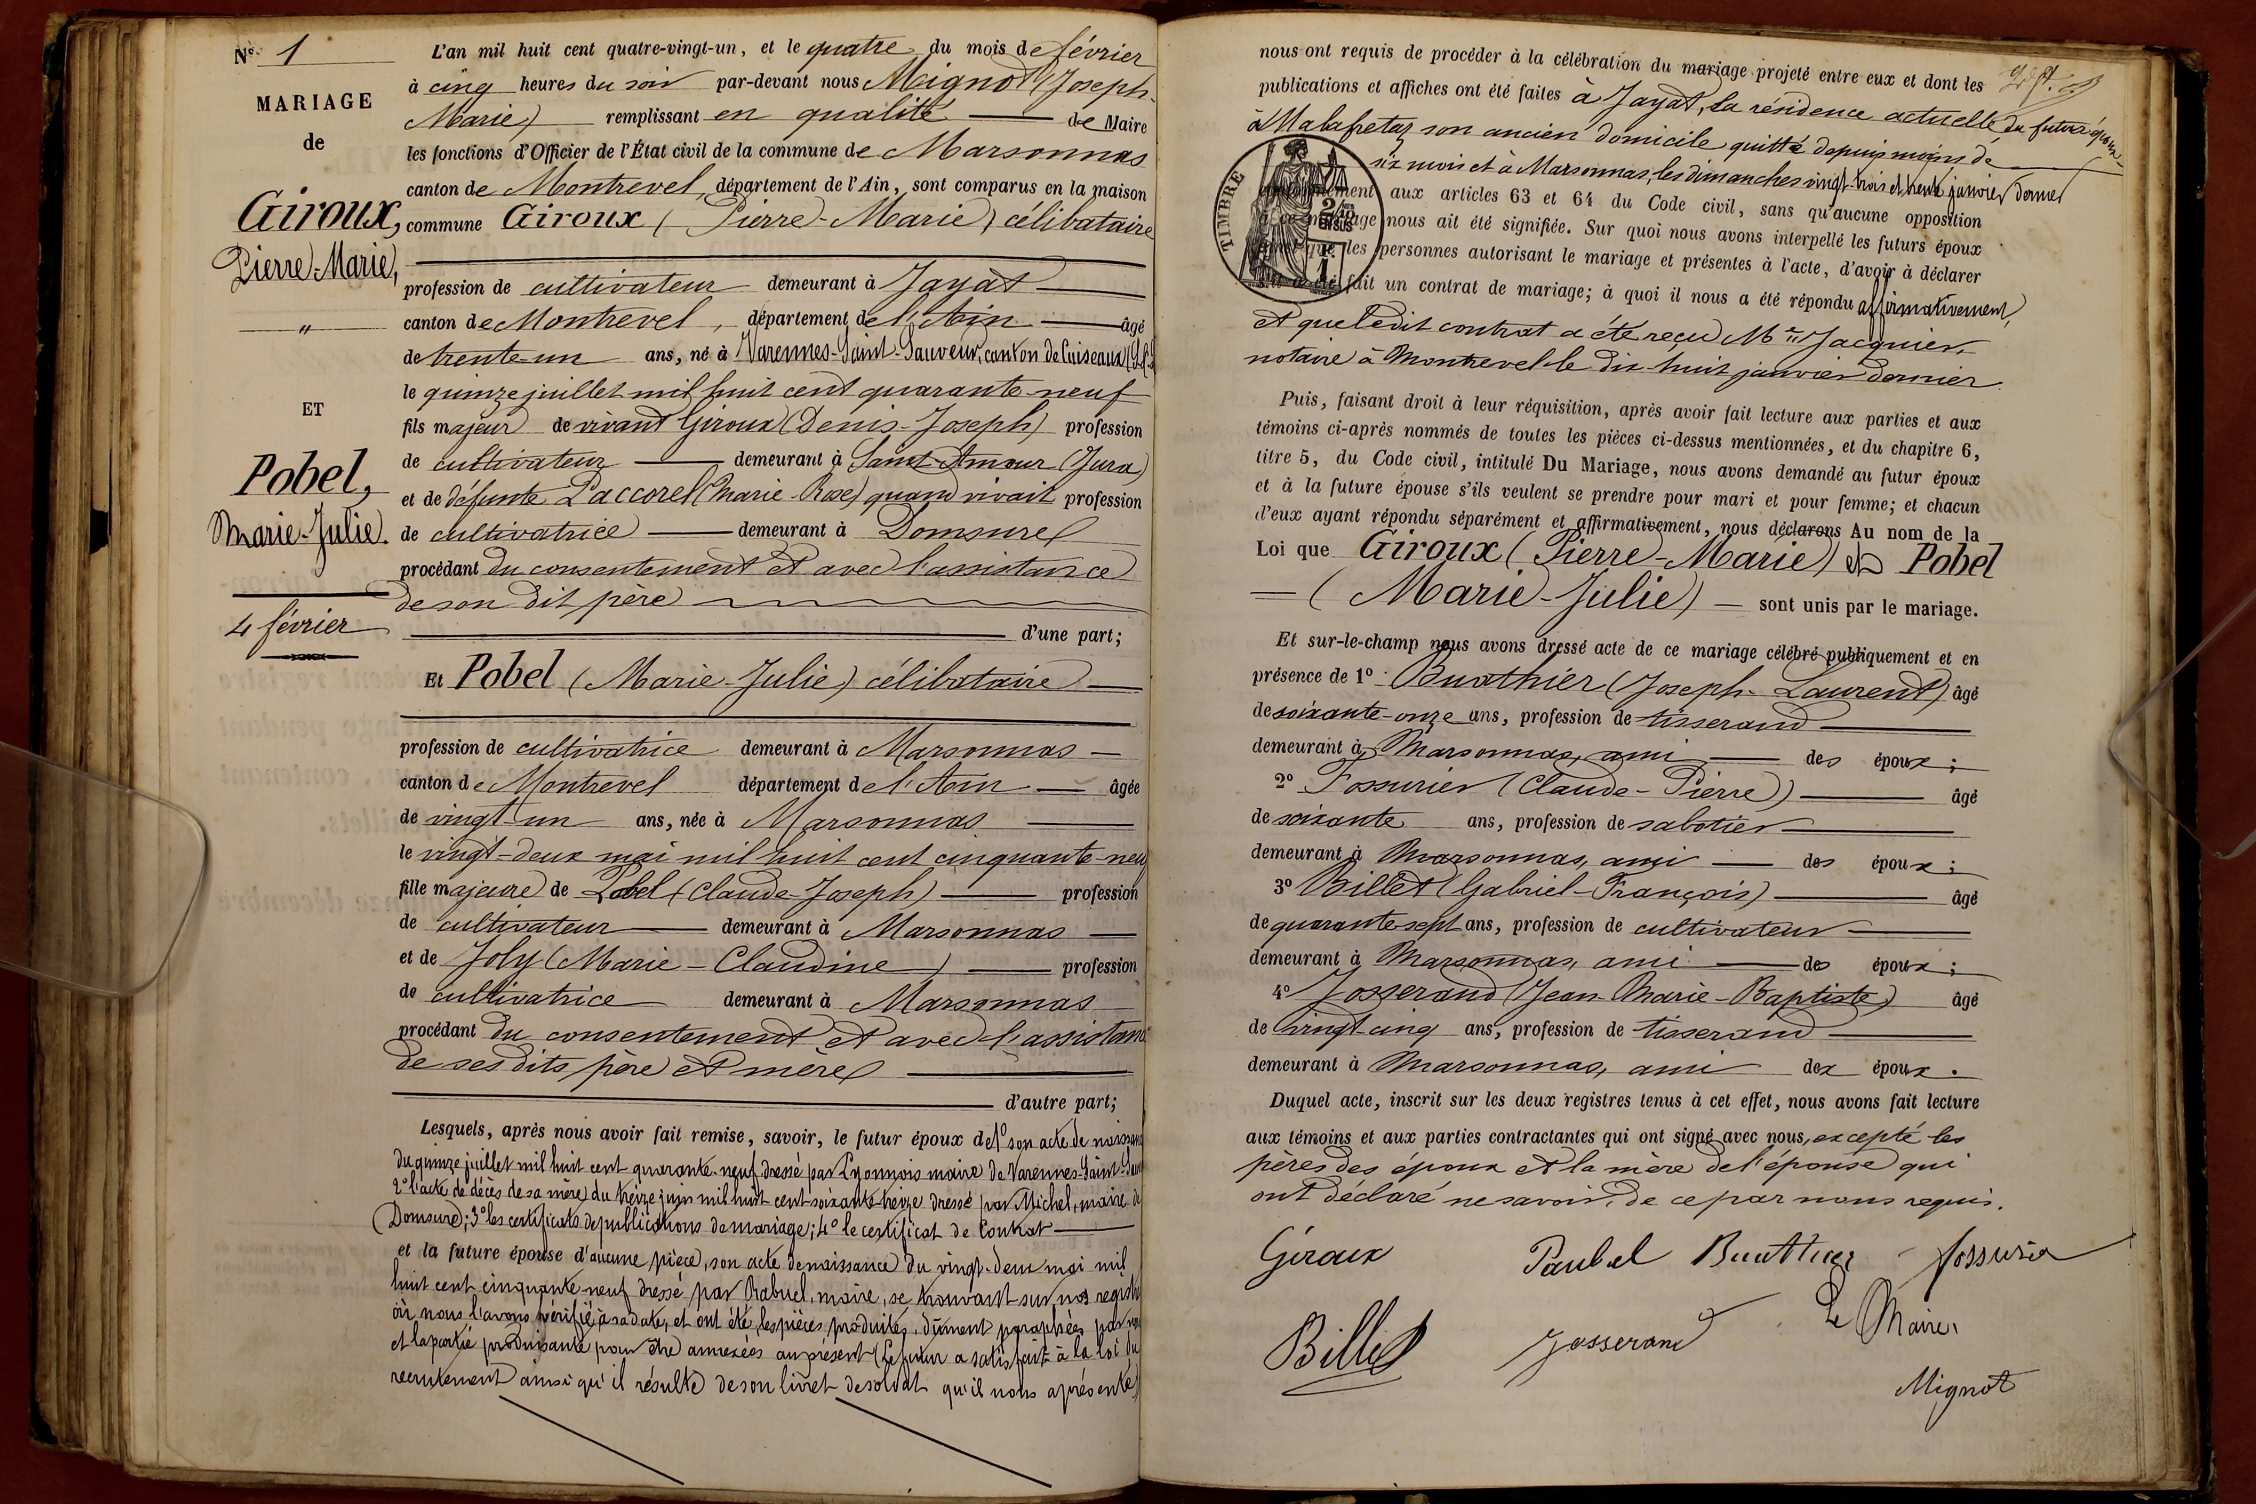 N° 1
MARIAGE
de
Giroux,
Pierre-Marie,
"
ET
Pobel,
Marie-Julie.
4 février
L'an mil huit cent quatre-vingt-un, et le quatre du mois de février
à cinq heures du soir par-devant nous Mignot (Joseph-
Marie) remplissant en qualité de Maire
les fonctions d'Officier de l'État civil de la commune de Marsonnas
canton de Montrevel, département de l'Ain, sont comparus en la maison
commune Giroux (Pierre-Marie) célibataire
profession de cultivateur demeurant à Jayat
canton de Montrevel, département de l'Ain âgé
de trente-un ans, né à Varennes-Saint-Sauveur, canton de Cuiseaux
le quinze juillet mil huit cent quarante-neuf
fils majeur de vivant Giroux (Denis-Joseph) profession
de cultivateur demeurant à Saint-Amour (Jura)
et de défunte Paccoret (Marie-Rose) quand vivait profession
de cultivatrice demeurant à Domsure
procédant du consentement et avec l'assistance
de son dit père
d'une part;
Et Pobel (Marie-Julie) célibataire
profession de cultivatrice demeurant à Marsonnas
canton de Montrevel département de l'Ain âgée
de vingt-un ans, née à Marsonnas
le vingt-deux mai mil huit cent cinquante-neuf
fille majeure de Pobel (Claude-Joseph) profession
de cultivateur demeurant à Marsonnas
et de Joly (Marie-Claudine) profession
de cultivatrice demeurant à Marsonnas
procédant du consentement et avec l'assistance
de ses dits père et mère
d'autre part;
Lesquels, après nous avoir fait remise, savoir, le futur époux de 1° son acte de naissance
du quinze juillet mil huit cent quarante-neuf dressé par Lyonnois maire de Varennes-Saint-Sau
2° l'acte de décès de sa mère du treize juin mil huit cent soixante-treize dressé par Michel, maire de
(Domsure); 3° les certificats de publications de mariage; 4° le certificat de Contrat
et la future épouse d'aucune pièce, son acte de naissance du vingt-deux mai mil
huit cent cinquante-neuf dressé par Rabuel, maire, se trouvant sur nos registres
où nous l'avons vérifié à sa date, et ont été, les pièces produites, dûment paraphées par nous
et la partie produisante pour être annexées au présent (Le futur a satisfait à la loi du
recrutement ainsi qu'il résulte de son livret de soldat qu'il nous a présenté)
nous ont requis de procéder à la célébration du mariage projeté entre eux et dont les
publications et affiches ont été faites à Jayat, la résidence actuelle du futur époux
à Malafretaz son ancien domicile quitté depuis moins de
six mois et à Marsonnas, les dimanches vingt-trois et trente janvier dernier
conformément aux articles 63 et 64 du Code civil, sans qu'aucune opposition
à ce mariage nous ait été signifiée. Sur quoi nous avons interpellé les futurs époux
ainsi que les personnes autorisant le mariage et présentes à l'acte, d'avoir à déclarer
s'il a été fait un contrat de mariage; à quoi il nous a été répondu affirmativement,
et que ledit contrat a été reçu Me Jacquier,
notaire à Montrevel le dix-huit janvier dernier.
TIMBRE
2/10es
EN SUS
1 F.
Puis, faisant droit à leur réquisition, après avoir fait lecture aux parties et aux
témoins ci-après nommés de toutes les pièces ci-dessus mentionnées, et du chapitre 6,
titre 5, du Code civil, intitulé Du Mariage, nous avons demandé au futur époux
et à la future épouse s'ils veulent se prendre pour mari et pour femme; et chacun
d'eux ayant répondu séparément et affirmativement, nous déclarons Au nom de la
Loi que Giroux (Pierre-Marie) et Pobel
(Marie-Julie) sont unis par le mariage.
Et sur-le-champ nous avons dressé acte de ce mariage célébré publiquement et en
présence de 1° Buathier (Joseph-Laurent) âgé
de soixante-onze ans, profession de tisserand
demeurant à Marsonnas, ami des époux;
2° Fossurier (Claude-Pierre) âgé
de soixante ans, profession de sabotier
demeurant à Marsonnas, ami des époux;
3° Billet (Gabriel-François) âgé
de quarante-sept ans, profession de cultivateur
demeurant à Marsonnas, ami des époux;
4° Josserand (Jean-Marie-Baptiste) âgé
de vingt-cinq ans, profession de tisserand
demeurant à Marsonnas, ami des époux.
Duquel acte, inscrit sur les deux registres tenus à cet effet, nous avons fait lecture
aux témoins et aux parties contractantes qui ont signé avec nous, excepté les
pères des époux et la mère de l'épouse qui
ont déclaré ne savoir, de ce par nous requis.
Giroux Paubel Buathier fossurier
Billet Josserand Le Maire,
Mignot